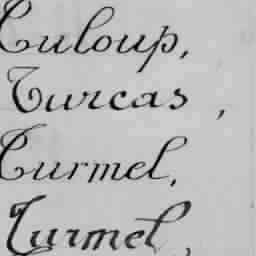 Culoup,
Turcas,
Turmel,
Turmel,